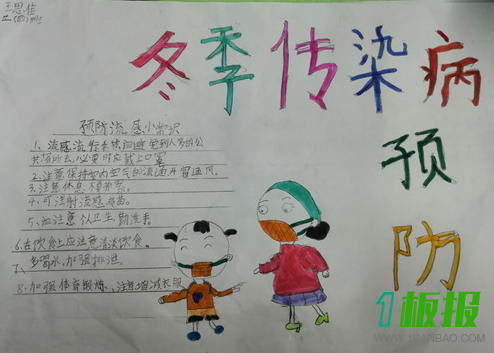 王思佳
二(四)班
冬季传染病
预防
预防流感小常识
1、流感流行季节应避免到人多的公
共场所去,必要时应戴上口罩
2.注意保持室内空气的流通开窗通风.
3.注意休息,
4.可注射流感疫苗。
5、应注意卫生勤洗手。
6.在饮食上应注意清淡饮食。
7、多喝水,加强排泄。
8.加强体育锻炼、注意增减衣服
1板报
WWW.1BANBAO.COM